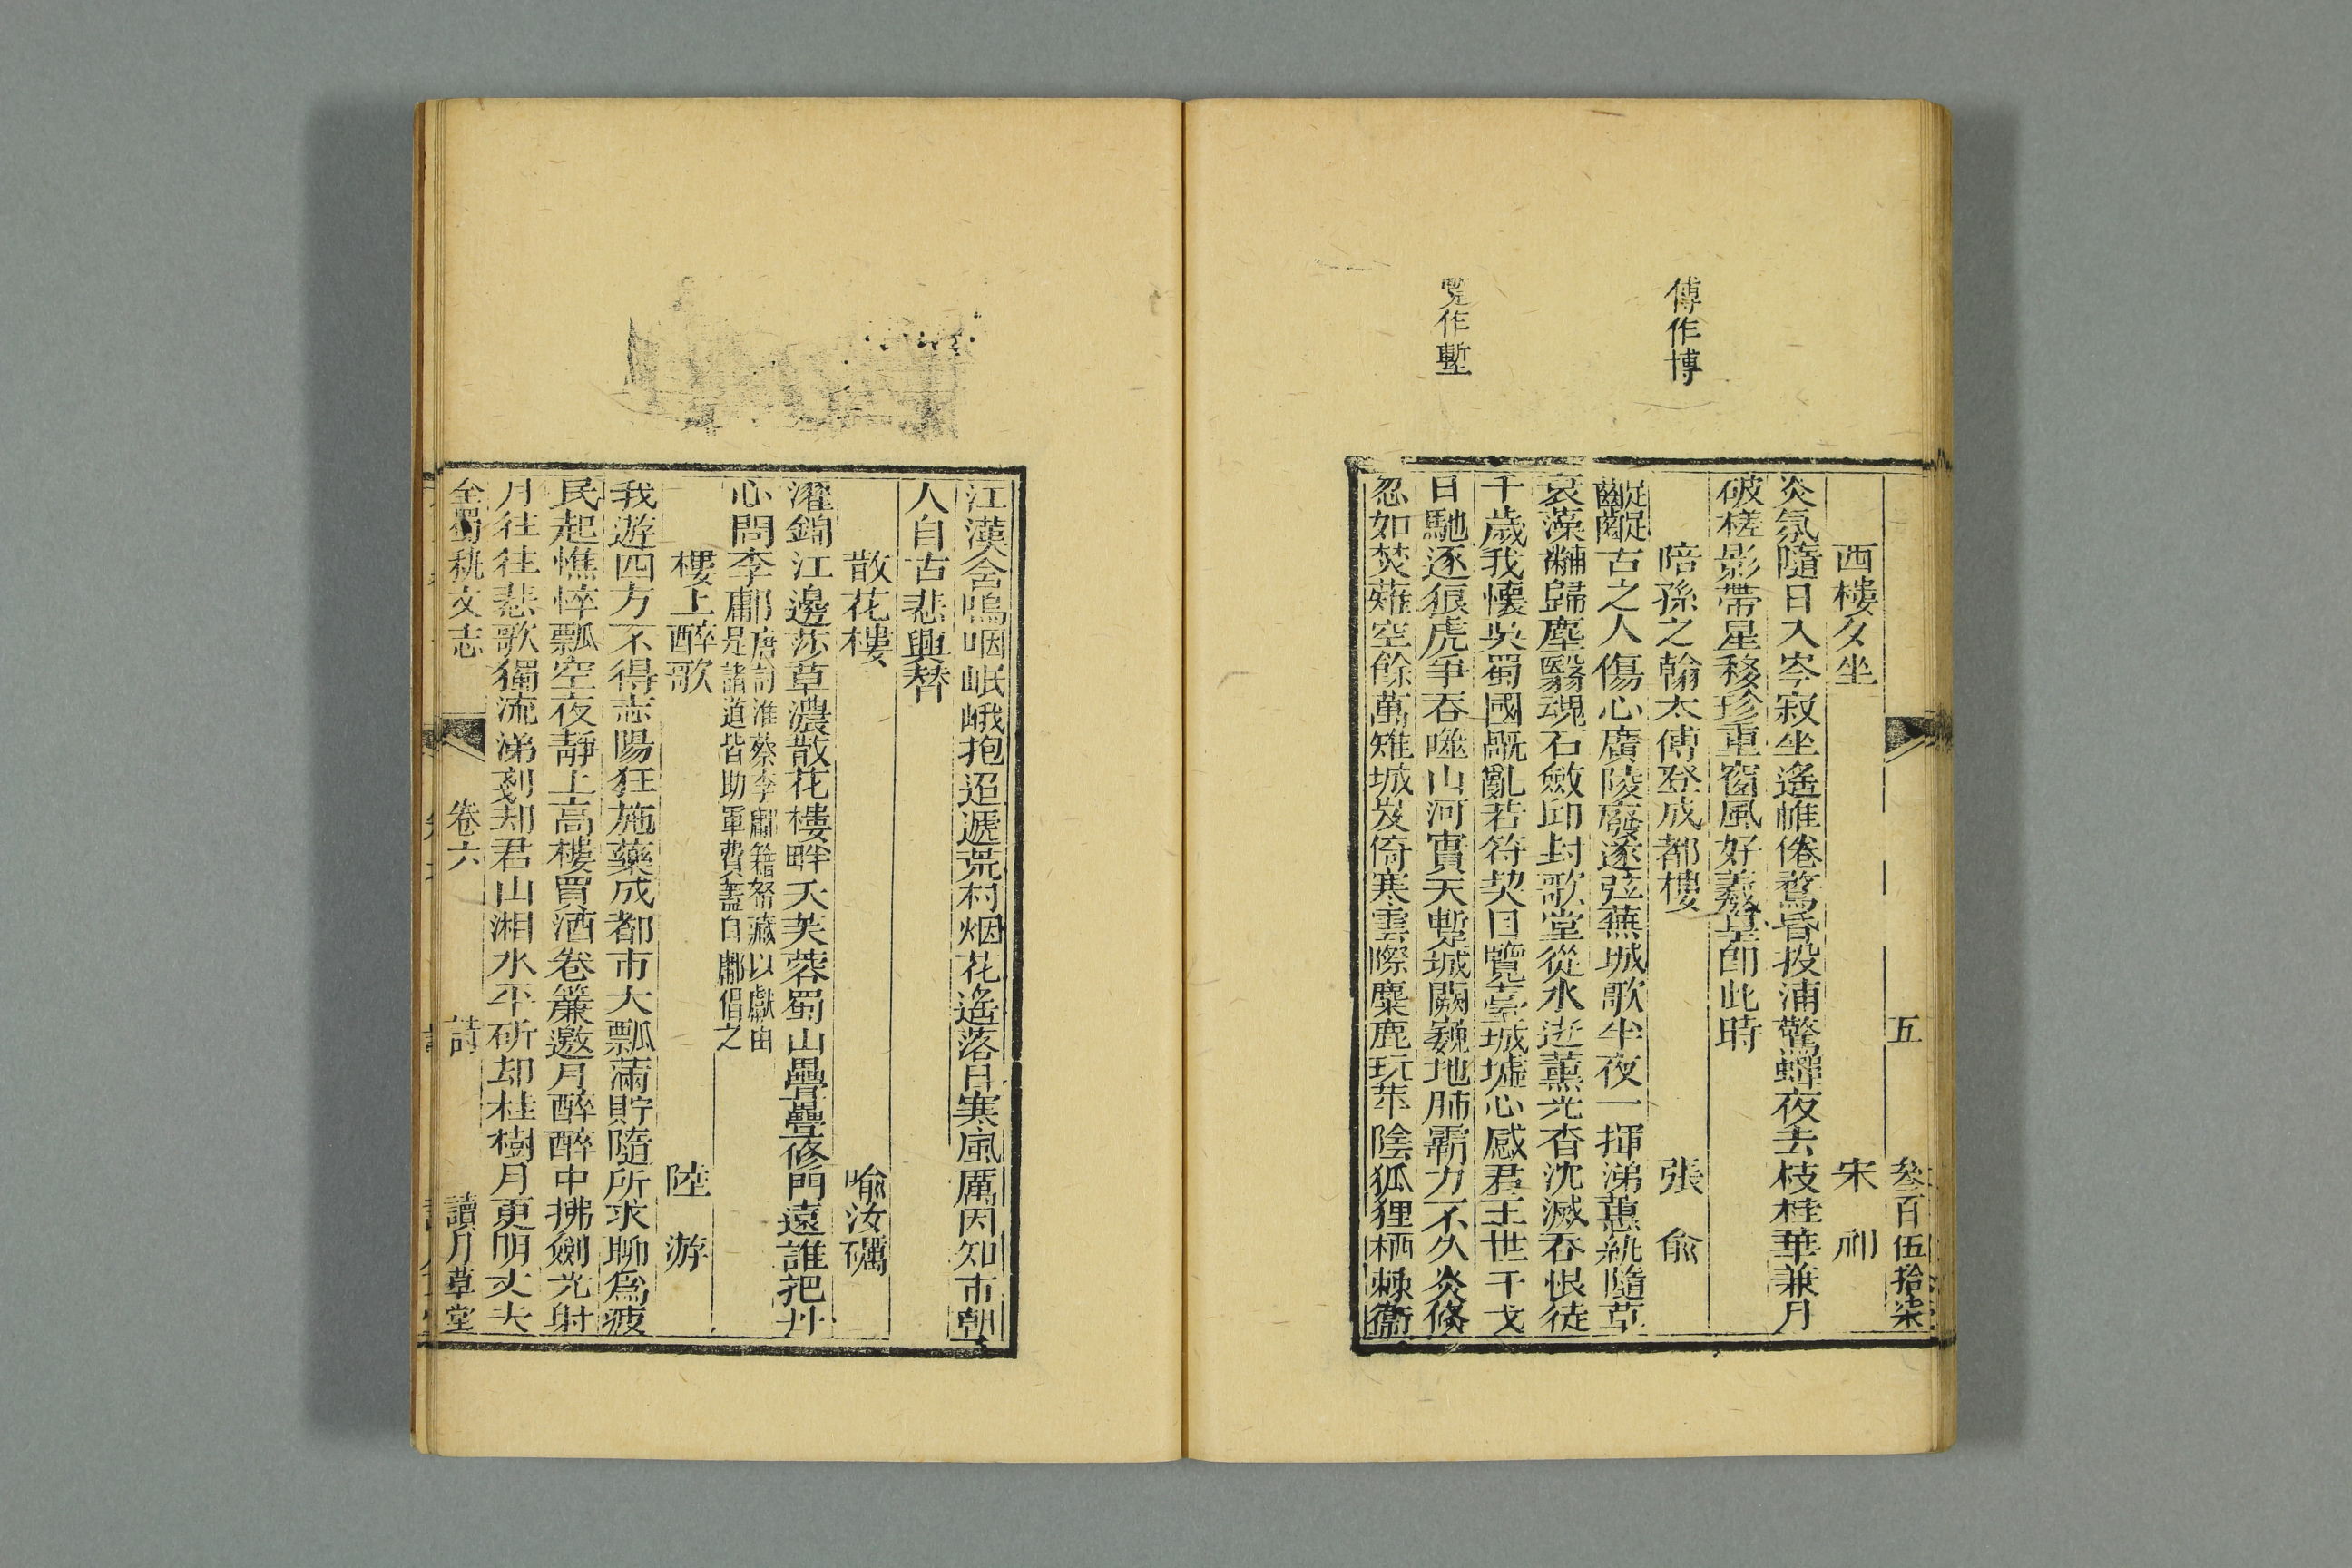 傅作博
覧作塹
五
叄百伍拾柒
西樓夕坐 宋祁
炎氛隨日入岑寂坐遙帷倦鶩昏投浦驚蟬夜去枝桂華兼月
破槎影帶星移珍重窗風好羲皇卽此時
陪孫之翰太傅登成都樓 張俞
齪齪古之人傷心廣陵廢遂弦蕪城歌半夜一揮涕蕙紈隨草
衰藻黼歸塵翳魂石斂邱封歌堂從水逝薰光杳沈滅吞恨徒
千歲我懷吳蜀國旤亂若符契日覽臺城墟心感君王世干戈
日馳逐狼虎爭吞噬山河實天塹城闕巍地肺霸力不久炎倏
忽如焚薙空餘萬雉城岌倚寒雲際麋鹿玩茱陰狐狸栖棘衞
江漢含嗚咽岷峨抱迢遞荒村烟花遙落日寒風厲因知市朝
人自古悲興替
散花樓 喻汝礪
濯錦江邊莎草濃散花樓畔天芙蓉蜀山疊疊修門遠誰把丹
心問李鄘唐討淮蔡李鄘籍帑藏以獻由
是諸道皆助軍費蓋自鄘倡之
樓上醉歌 陸游
我遊四方不得志陽狂施藥成都市大瓢滿貯隨所求聊爲疲
民起憔悴瓢空夜靜上高樓買酒卷簾邀月醉醉中拂劍光射
月往往悲歌獨流涕剗却君山湘水平斫却桂樹月更明丈夫
全蜀秇文志 卷六 詩 讀月草堂